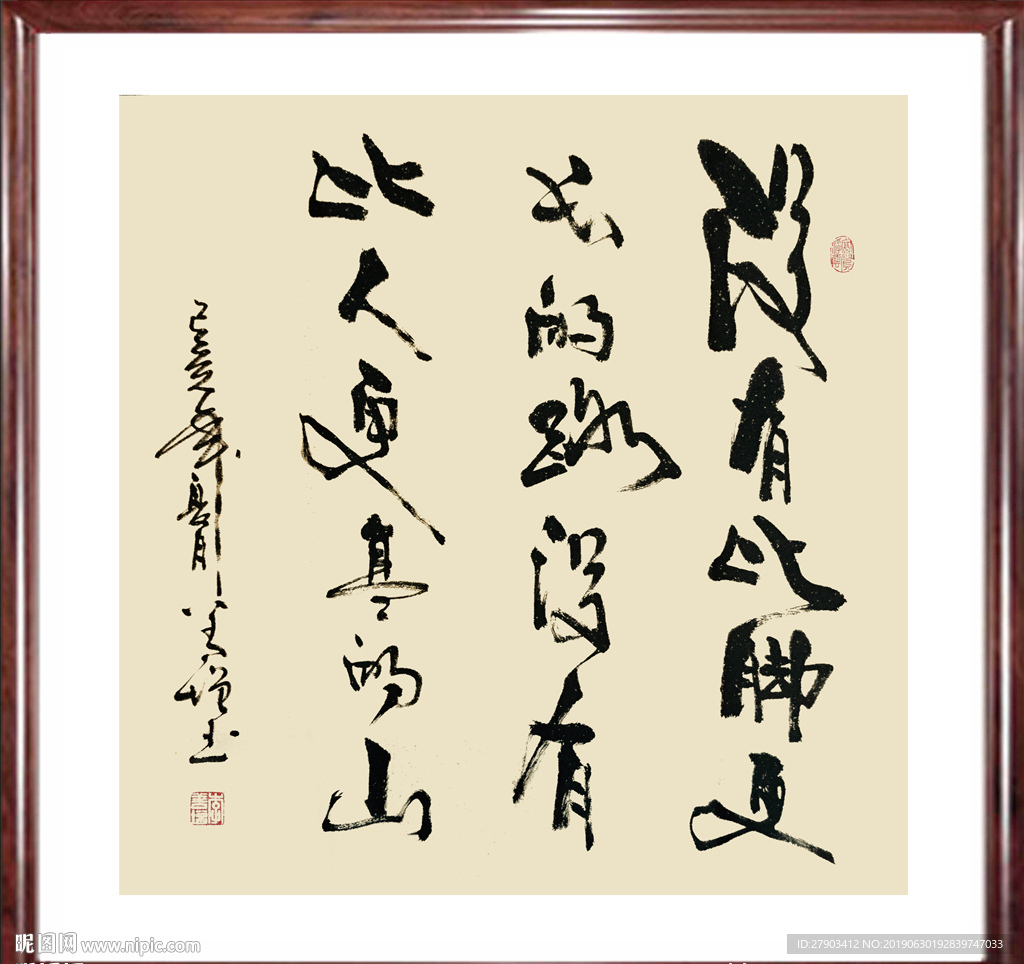 没有比脚更
长的路没有
比人更高的山
己亥年夏月善增玉
昵图网 www.nipic.com
ID:27903412 NO:20190630192839747033